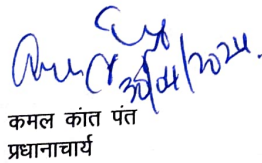 30/04/2024.
कमल कांत पंत
प्रधानाचार्य